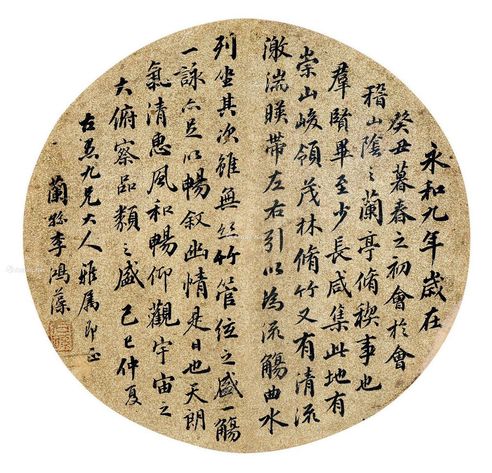 永和九年歲在
癸丑暮春之初會於會
稽山陰之蘭亭脩稧事也
羣賢畢至少長咸集此地有
崇山峻領茂林脩竹又有清流
激湍暎帶左右引以為流觴曲水
列坐其次雖無絲竹管弦之盛一觴
一詠亦足以暢敘幽情是日也天朗
氣清惠風和暢仰觀宇宙之
大俯察品類之盛 己巳仲夏
九兄大人雅屬即正
蘭孫李鴻藻